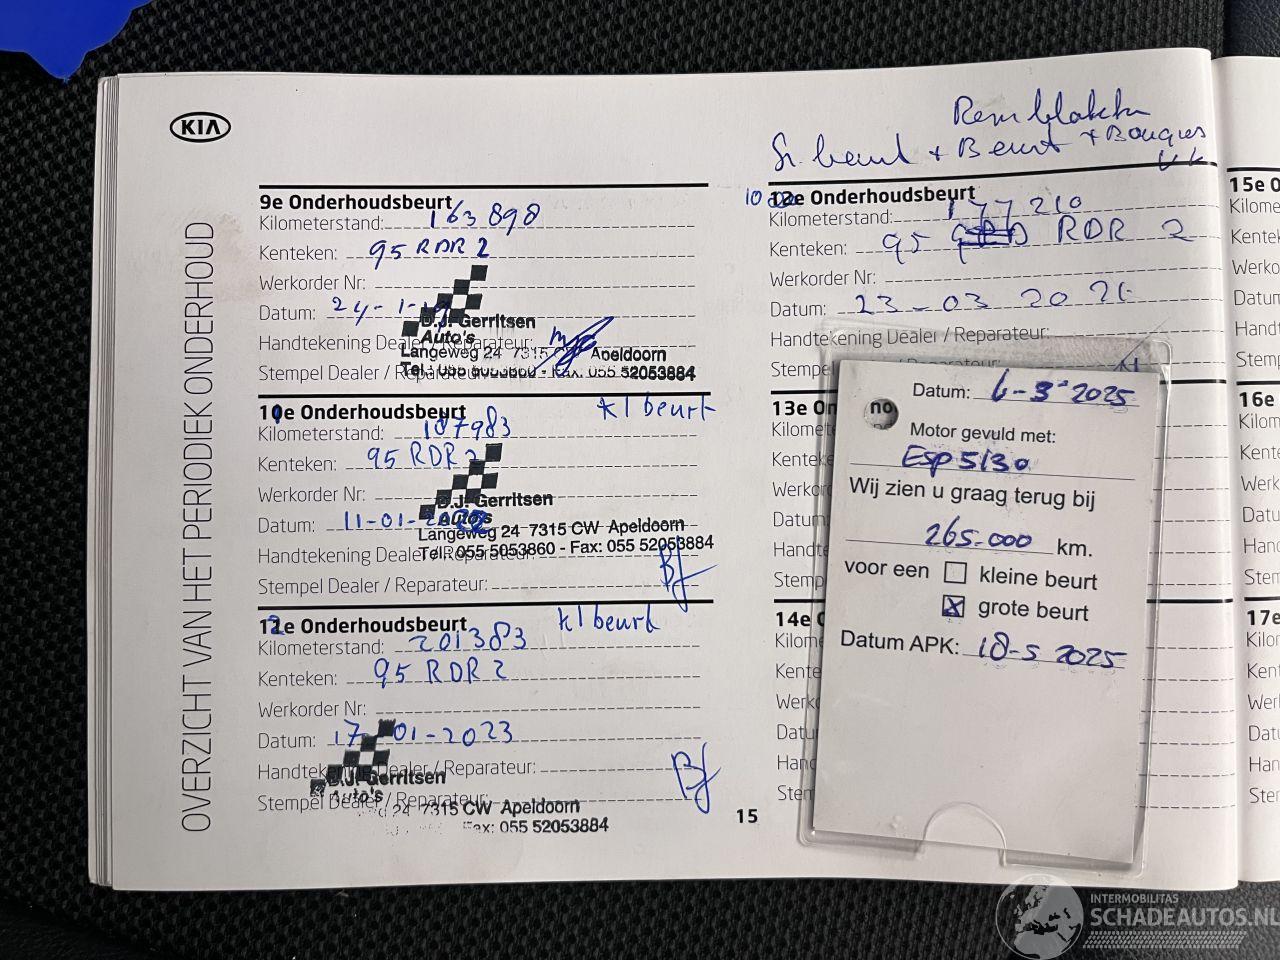 KIA
OVERZICHT VAN HET PERIODIEK ONDERHOUD
9e Onderhoudsbeurt
Kilometerstand: 163898
Kenteken: 95 RDR 2
Werkorder Nr:
Datum: 24-1-
D.J. Gerritsen
Auto's
Handtekening Dealer / Reparateur:
Langeweg 24 7315 CW Apeldoorn
Stempel Dealer / Reparateur:
Tel.: 055 5053860 - Fax: 055 52053884
10e Onderhoudsbeurt kl beurt
Kilometerstand: 187983
Kenteken: 95 RDR 2
Werkorder Nr:
D.J. Gerritsen
Auto's
Datum: 11-01-2022
Langeweg 24 7315 CW Apeldoorn
Handtekening Dealer / Reparateur:
Tel: 055 5053860 - Fax: 055 52053884
Stempel Dealer / Reparateur:
12e Onderhoudsbeurt kl beurt
Kilometerstand: 201383
Kenteken: 95 RDR 2
Werkorder Nr:
Datum: 17-01-2023
Handtekening Dealer / Reparateur:
D.J. Gerritsen
Auto's
Stempel Dealer / Reparateur:
24 7315 CW Apeldoorn
Fax: 055 52053884
15
Remblokken
Gr. beurt + Beurt + Bougies
12e Onderhoudsbeurt
Kilometerstand: 177210
Kenteken: 95 RDR 2
Werkorder Nr:
Datum: 23-03 202
Handtekening Dealer / Reparateur:
Stempel Dealer / Reparateur:
13e On
Kilomet
Kenteke
Werko
Datum
Handt
Stemp
14e O
Kilom
Kente
Werk
Datu
Hand
Sten
Datum: 6-3-2025
no
Motor gevuld met:
Esp 5/30
Wij zien u graag terug bij
265.000 km.
voor een kleine beurt
grote beurt
Datum APK: 18-5 2025
15e O
Kilome
Kentek
Werko
Datun
Hand
Stem
16e
Kilom
Kent
Werk
Datu
Han
Sten
17e
Kilor
Kent
Werl
Datu
Han
Ster
INTERMOBILITAS
SCHADEAUTOS.NL